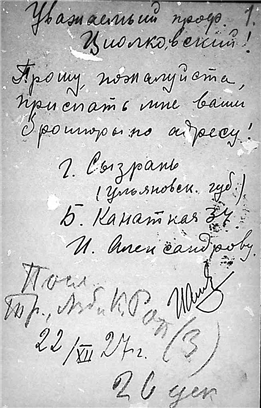 Уважаемый проф. 1.
Циолковский!
Прошу, пожалуйста,
прислать мне ваши
брошюры по адресу:
г. Сызрань
(ульяновск. губ.)
Б. Канатная 34
И. Александрову.
Посл.
22/XII 27 г. (3)
26